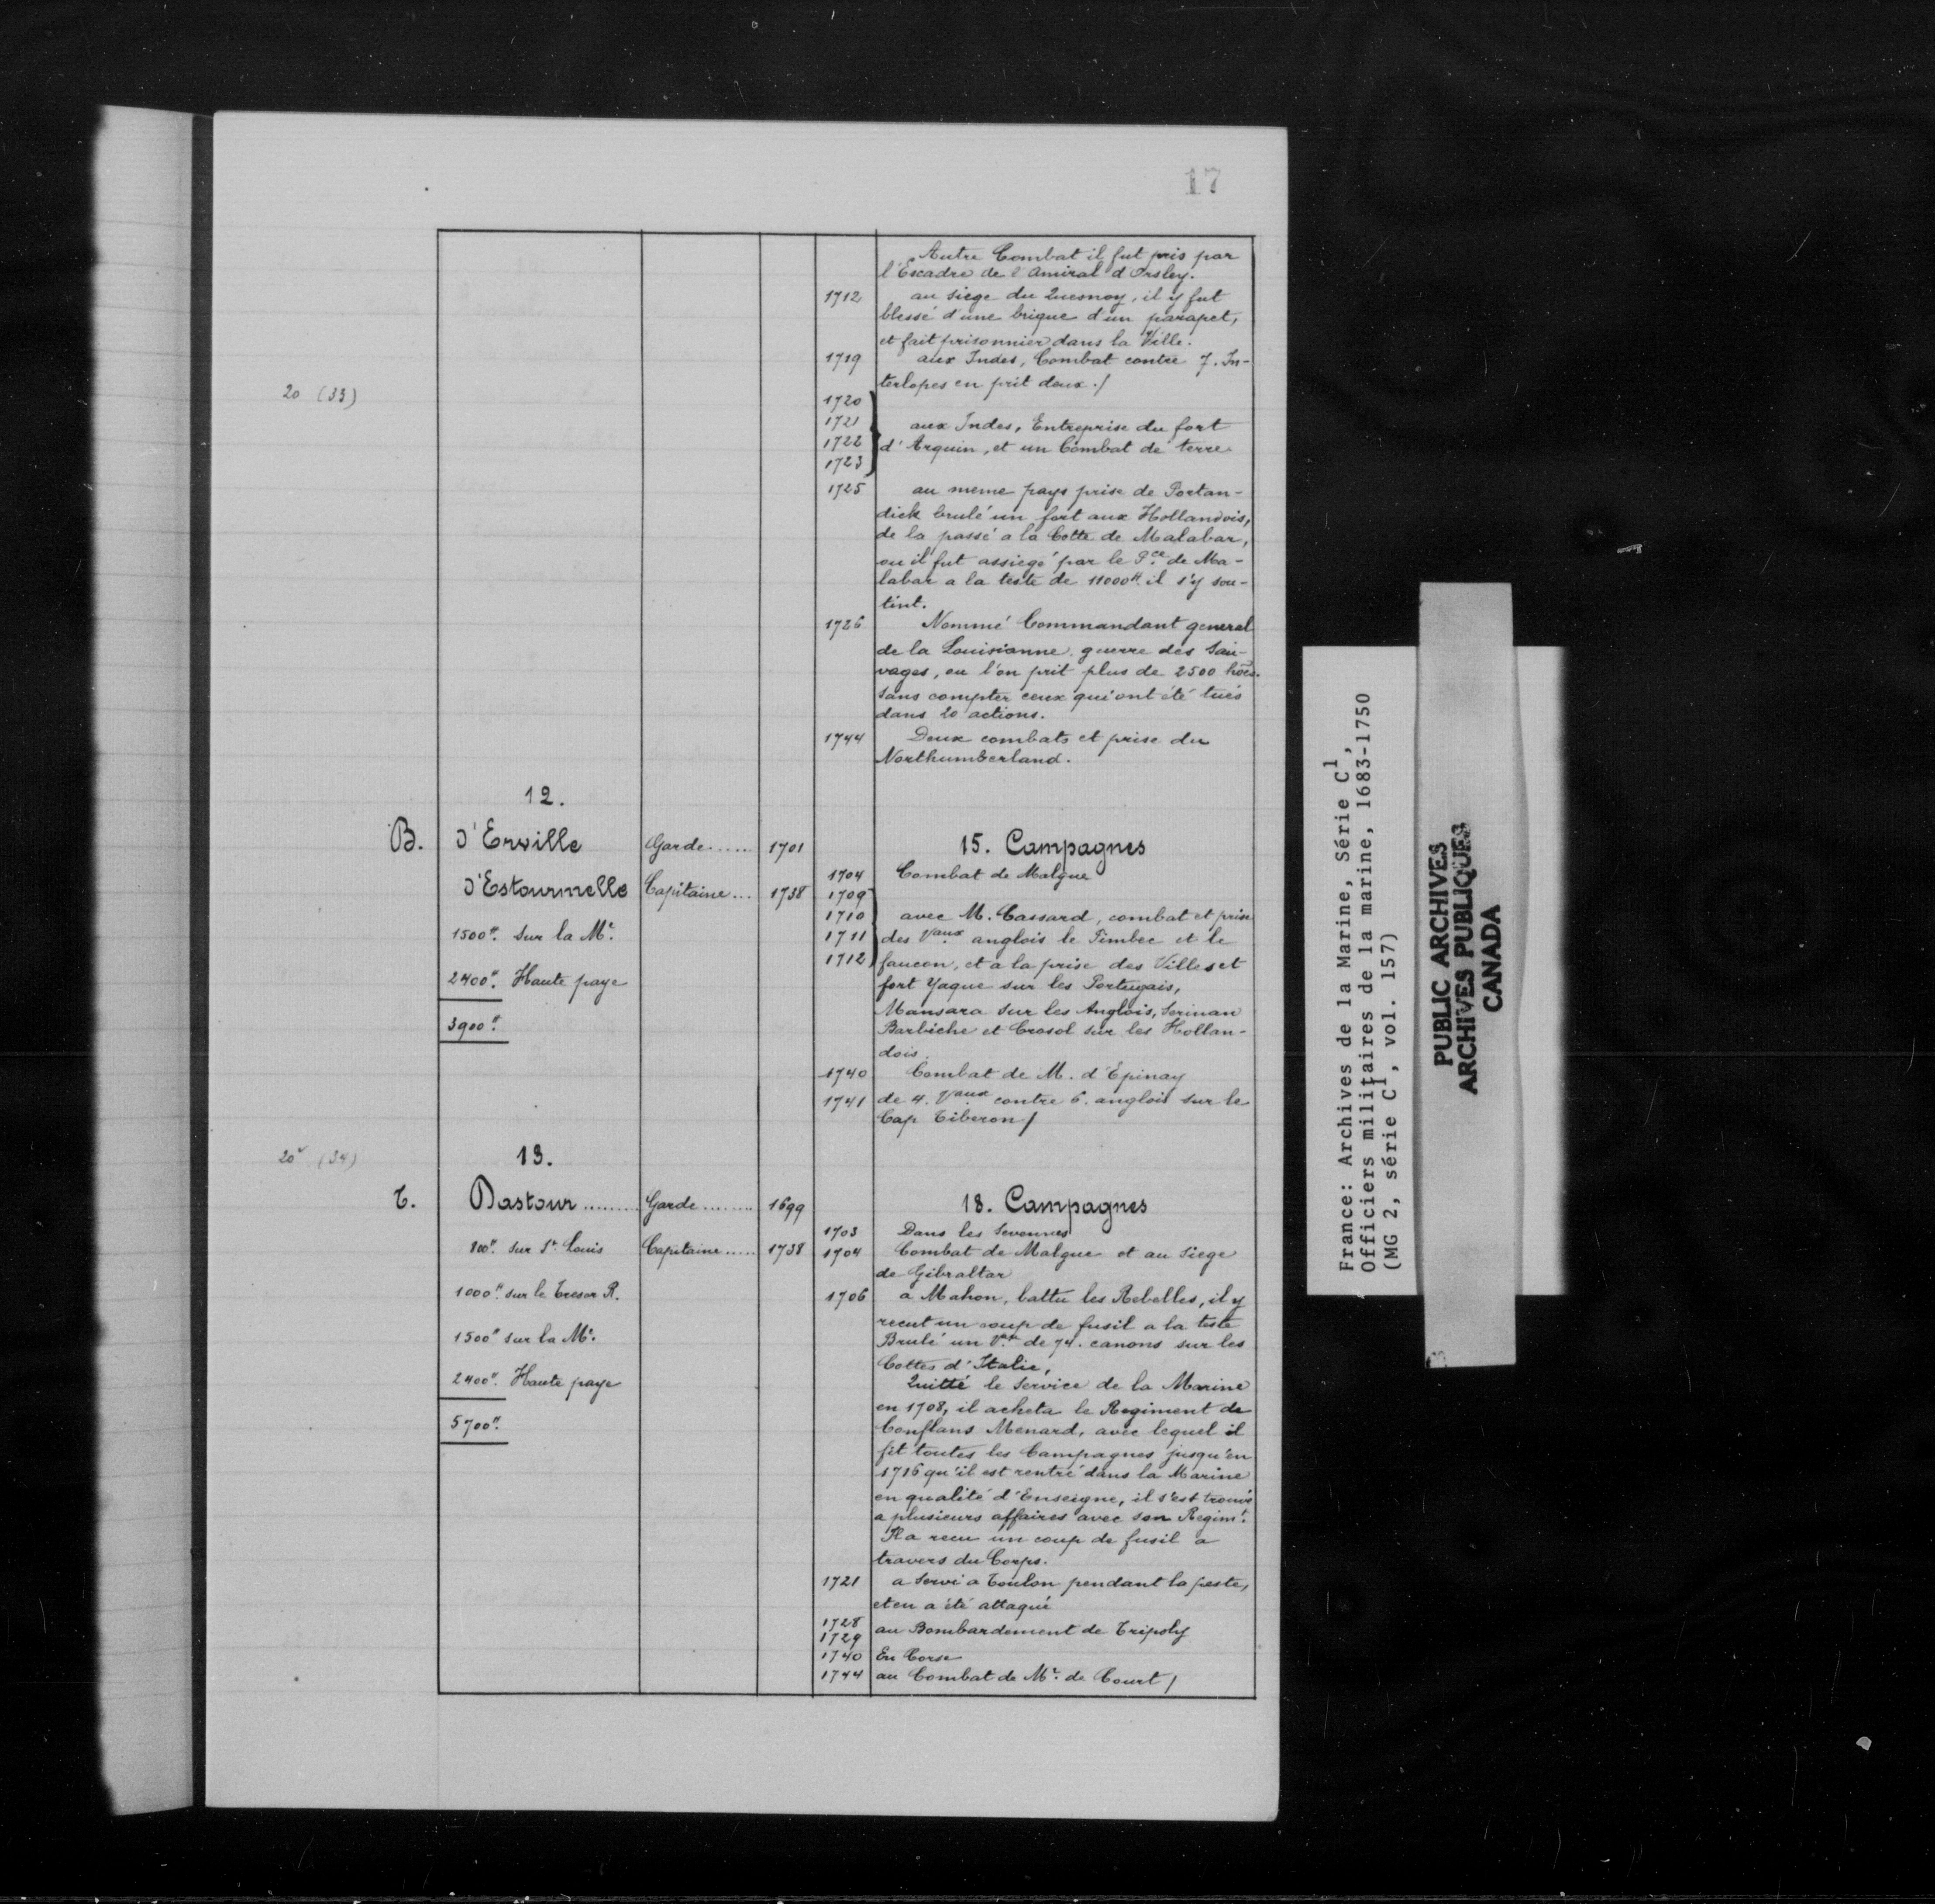 17
Autre Combat il fut pris par
l'Escadre de l'Amiral d'Orsley.
1712 au siege du Quesnoy, il y fut
blessé d'une brique d'un parapet,
et fait prisonnier dans la Ville.
1719 aux Indes, Combat contre 7. In-
terlopes en prit deux./
20 (33)
1720
1721 aux Indes, Entreprise du fort
1722 d'Arguin, et un Combat de terre
1723
1725 au meme pays prise de Portan-
dick brulé un fort aux Hollandois,
de la passé a la Cotte de Malabar,
ou il fut assiegé par le Pce. de Ma-
labar a la teste de 11000 H. il s'y sou-
tint.
1726 Nommé Commandant general
de la Louisianne guerre des Sau-
vages, ou l'on prit plus de 2500 hoes.
sans compter ceux qui ont été tués
dans 20 actions.
1744 Deux combats et prise du
Northumberland.
12.
B. D'Erville Garde...... 1701 15. Campagnes
1704 Combat de Malgue
D'Estourmelle Capitaine... 1738 1709
1710 avec M. Cassard, combat et prise
1500tt. sur la Me. 1711 des Vaux anglois le Pimbec et le
1712 faucon, et a la prise des Villes et
2400tt. Haute paye fort Yague sur les Portugais,
Mansara sur les Anglois, Serinan
3900tt. Barbiche et Crosol sur les Hollan-
dois.
1740 Combat de M. d'Epinay
1741 de 4. Vaux contre 6. anglois sur le
Cap Tiberon/
20v (34) 13.
T. Dastour......... Garde......... 1699 18. Campagnes
1703 Dans les Sevennes
800tt. sur St. Louis Capitaine..... 1738 1704 Combat de Malgue et au Siege
de Gibraltar
1000tt. sur le Tresor R. 1706 a Mahon, battu les Rebelles, il y
recut un coup de fusil a la teste
1500tt sur la Me. Brulé un Vau de 74. canons sur les
Cottes d'Italie,
2400tt. Haute paye Quitté le Service de la Marine
en 1708, il acheta le Regiment de
5700tt. Conflans Menard, avec lequel il
fit toutes les Campagnes jusqu'en
1716 qu'il est rentré dans la Marine
en qualité d'Enseigne, il s'est trouvé
a plusieurs affaires avec son Regimt.
Il a recu un coup de fusil a
travers du Corps.
1721 a Servi a Toulon pendant la peste,
et en a été attaqué
1728
1729 au Bombardement de Tripoly
1740 En Corse
1744 au Combat de Mr. de Court/
France: Archives de la Marine, Série C1,
Officiers militaires de la marine, 1683-1750
(MG 2, série C1, vol. 157)
PUBLIC ARCHIVES
ARCHIVES PUBLIQUES
CANADA